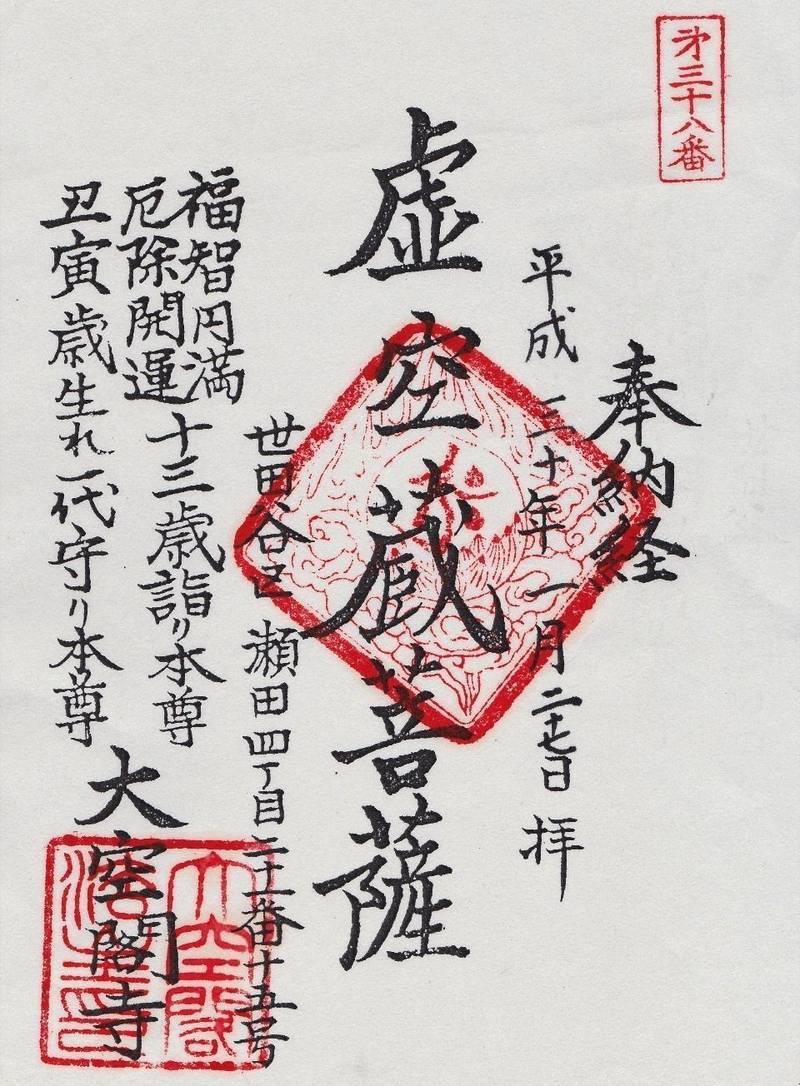 㐧三十八番
奉納経
平成三十年一月二十七日 拝
虚空蔵菩薩
世田谷区 瀬田四丁目二十一番十五号
福智円満
厄除開運
十三歳詣り本尊
丑寅歳生れ一代守り本尊
大空閣寺
大空閣